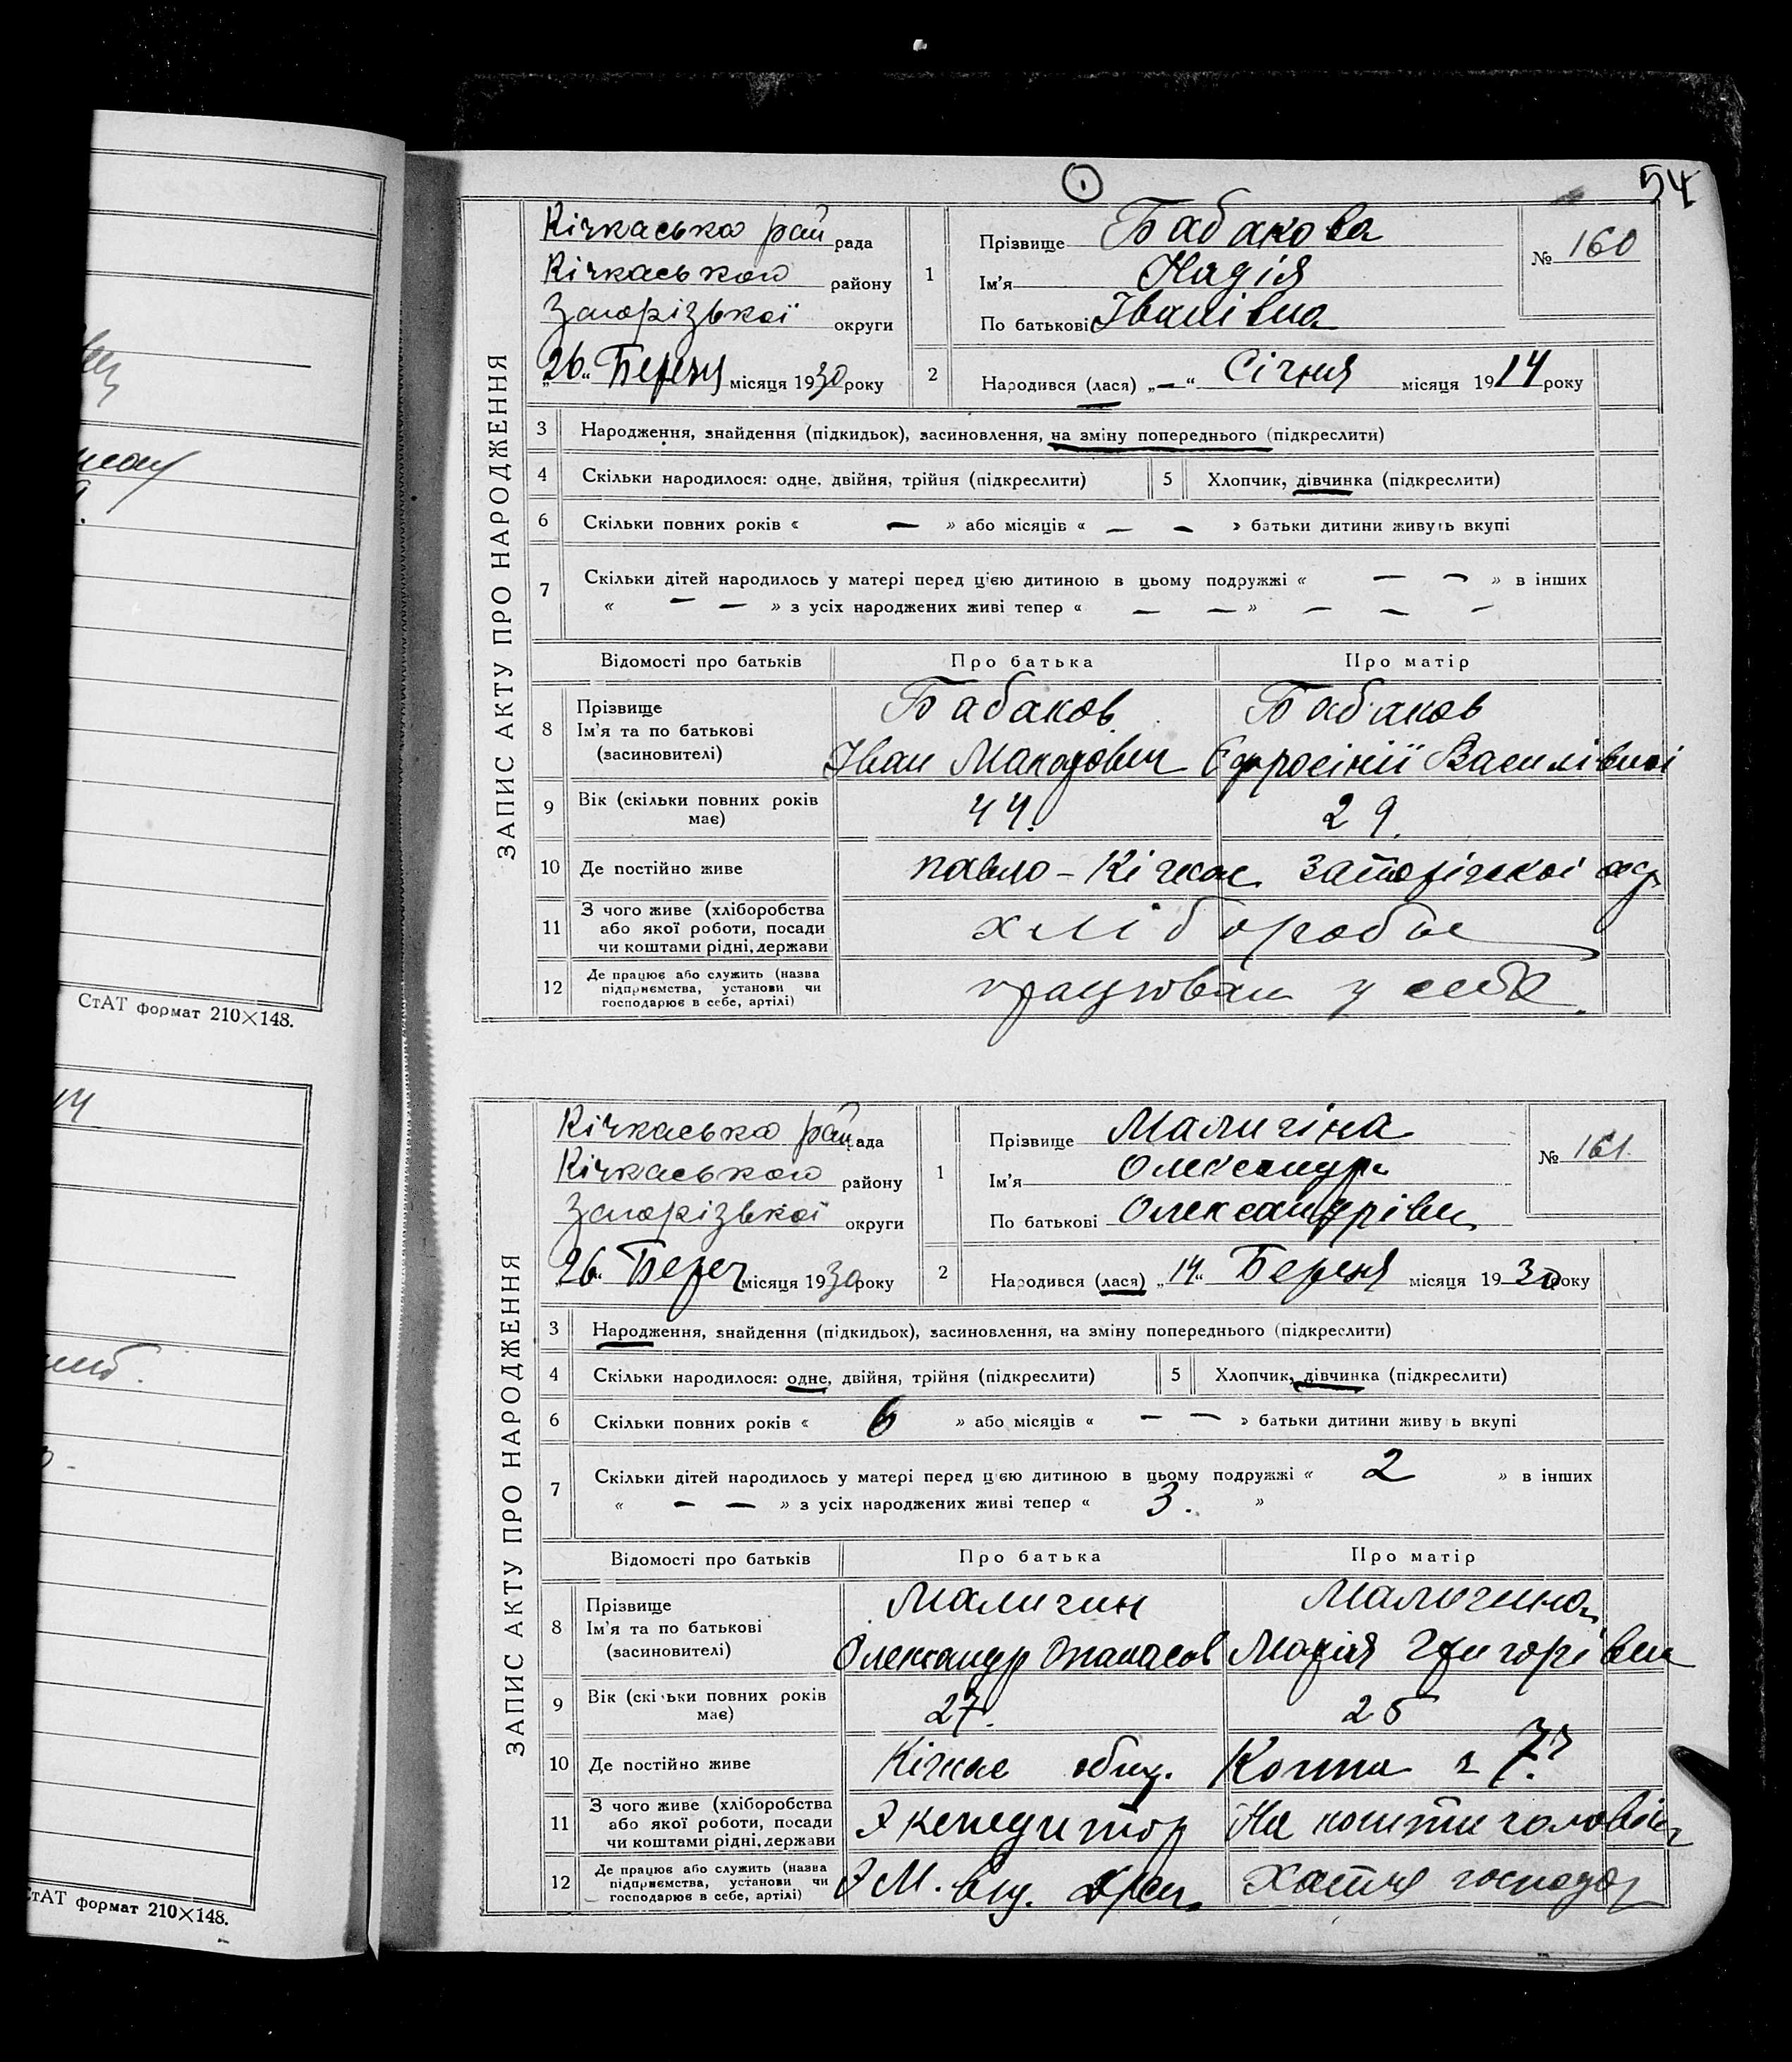 1
54
ЗАПИС АКТУ ПРО НАРОДЖЕННЯ
Кічкаська рай рада
Кічкаського району
Запорізької округи
„26“ Березня місяця 1930 року
1
Прізвище Бабакова
Ім'я Надія
По батькові Іванівна
№ 160
2
Народився (лася) „—“ Січня місяця 1914 року
3 Народження, знайдення (підкидьок), засиновлення, на зміну попереднього (підкреслити)
4 Скільки народилося: одне, двійня, трійня (підкреслити) 5 Хлопчик, дівчинка (підкреслити)
6 Скільки повних років « — » або місяців « — — » батьки дитини живуть вкупі
7 Скільки дітей народилось у матері перед цією дитиною в цьому подружжі « — — » в інших
« — — » з усіх народжених живі тепер « — — » — — —
Відомості про батьків Про батька Про матір
8 Прізвище Ім'я та по батькові (засновителі)
Бабаков Бабаков
Іван Єфросінії Василівни
9 Вік (скільки повних років має) 44. 29.
10 Де постійно живе Павло-Кічкас Запоріжкої окр
11 З чого живе (хліборобства або якої роботи, посади чи коштами рідні, держави
хлібороби
12 Де працює або служить (назва підприємства, установи чи господарює в себе, артілі)
працювали у себе
СтАТ формат 210×148.
ЗАПИС АКТУ ПРО НАРОДЖЕННЯ
Кічкаська рай рада
Кічкаського району
Запорізької округи
„26“ Берез місяця 1930 року
1
Прізвище Маличіна
Ім'я Олександра
По батькові Олександрівна
№ 161.
2
Народився (лася) „14“ Березня місяця 1930 року
3 Народження, знайдення (підкидьок), засиновлення, на зміну попереднього (підкреслити)
4 Скільки народилося: одне, двійня, трійня (підкреслити) 5 Хлопчик, дівчинка (підкреслити)
6 Скільки повних років « 6 » або місяців « — — » батьки дитини живуть вкупі
7 Скільки дітей народилось у матері перед цією дитиною в цьому подружжі « 2 » в інших
« — — » з усіх народжених живі тепер « 3. »
Відомості про батьків Про батька Про матір
8 Прізвище Ім'я та по батькові (засиновителі)
Маличин Маличина
Олександр Опанасов Марія Григорівна
9 Вік (скільки повних років має) 27. 25
10 Де постійно живе Кічкас
11 З чого живе (хліборобства або якої роботи, посади чи коштами рідні, держави
Экспедитор На кошти чоловіка
12 Де працює або служить (назва підприємства, установи чи господарює в себе, артілі)
Хатня господар
СтАТ формат 210×148.